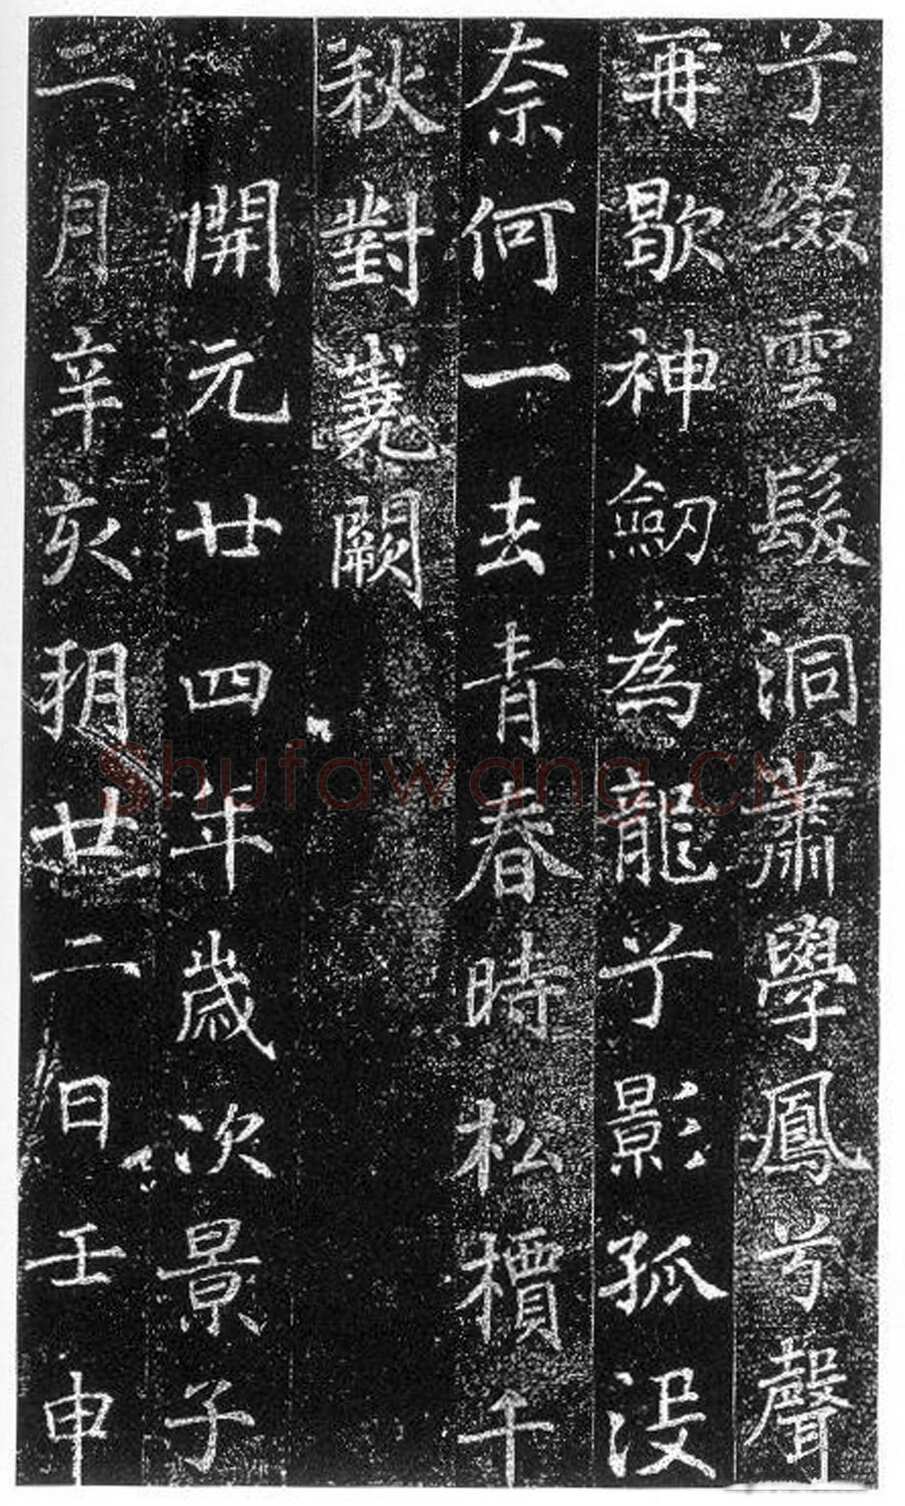 兮綴雲髮洞蕭學鳳兮聲
再歇神劒為龍兮影孤没
奈何一去青春時松檟千
秋對嶤闕
開元廿四年歲次景子
二月辛亥朔廿二日壬申
Shufawang.CN